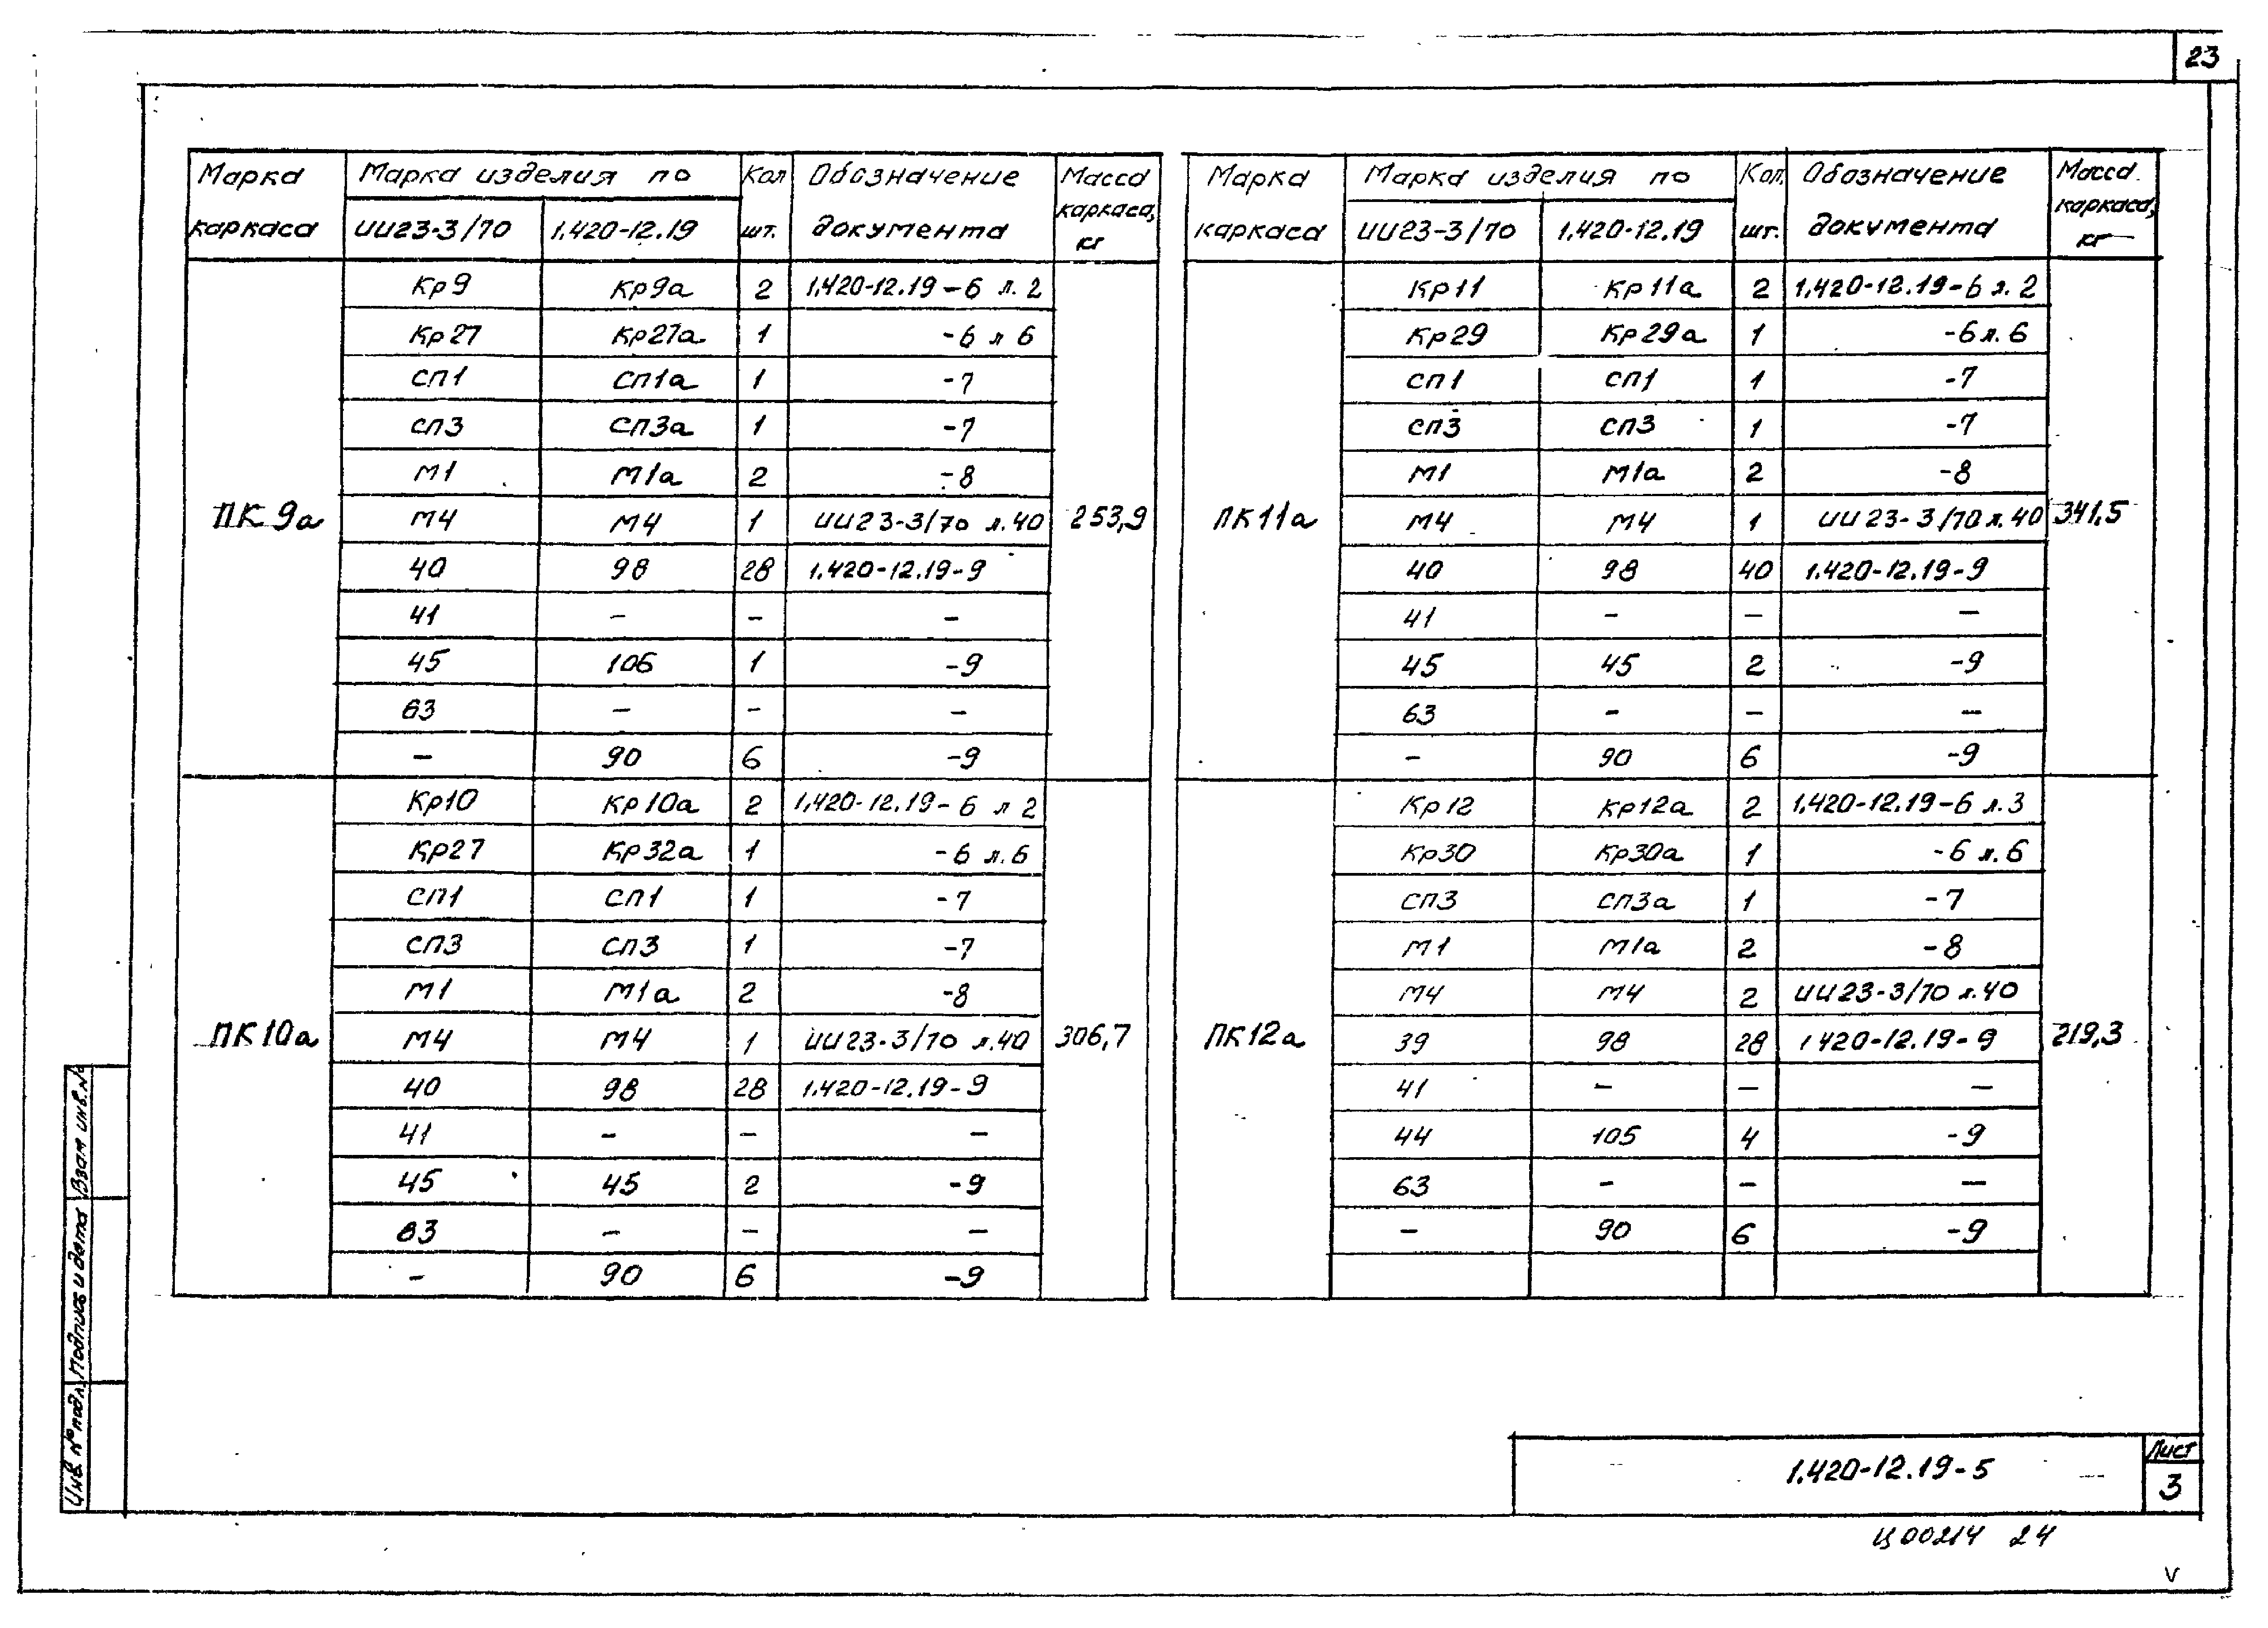 23
Марка каркаса | Марка изделия по | Кол шт. | Обозначение документа | Масса каркаса, кг
ИИ23-3/70 | 1.420-12.19
ПК9а | 253,9
Кр9 | Кр9а | 2 | 1.420-12.19-6 л. 2
Кр27 | Кр27а | 1 | -6 л 6
СП1 | СП1а | 1 | -7
СП3 | СП3а | 1 | -7
М1 | М1а | 2 | -8
М4 | М4 | 1 | ИИ23-3/70 л.40
40 | 98 | 28 | 1.420-12.19-9
41 | – | – | –
45 | 106 | 1 | -9
63 | – | – | –
– | 90 | 6 | -9
ПК10а | 306,7
Кр10 | Кр10а | 2 | 1.420-12.19-6 л 2
Кр27 | Кр32а | 1 | -6 л.6
СП1 | СП1 | 1 | -7
СП3 | СП3 | 1 | -7
М1 | М1а | 2 | -8
М4 | М4 | 1 | ИИ23-3/70 л.40
40 | 98 | 28 | 1.420-12.19-9
41 | – | – | –
45 | 45 | 2 | -9
63 | – | – | –
– | 90 | 6 | -9
Марка каркаса | Марка изделия по | Кол. шт. | Обозначение документа | Масса каркаса, кг
ИИ23-3/70 | 1.420-12.19
ПК11а | 341,5
Кр11 | Кр11а | 2 | 1.420-12.19-6 л. 2
Кр29 | Кр29а | 1 | -6 л. 6
СП1 | СП1 | 1 | -7
СП3 | СП3 | 1 | -7
М1 | М1а | 2 | -8
М4 | М4 | 1 | ИИ23-3/70 л.40
40 | 98 | 40 | 1.420-12.19-9
41 | – | – | –
45 | 45 | 2 | -9
63 | – | – | –
– | 90 | 6 | -9
ПК12а | 219,3
Кр12 | Кр12а | 2 | 1.420-12.19-6 л.3
Кр30 | Кр30а | 1 | -6 л.6
СП3 | СП3а | 1 | -7
М1 | М1а | 2 | -8
М4 | М4 | 2 | ИИ23-3/70 л.40
39 | 98 | 28 | 1 420-12.19-9
41 | – | – | –
44 | 105 | 4 | -9
63 | – | – | –
– | 90 | 6 | -9
Инв. № подл. Подпись и дата Взам инв. №
1.420-12.19-5
Лист
3
Ц00214 24